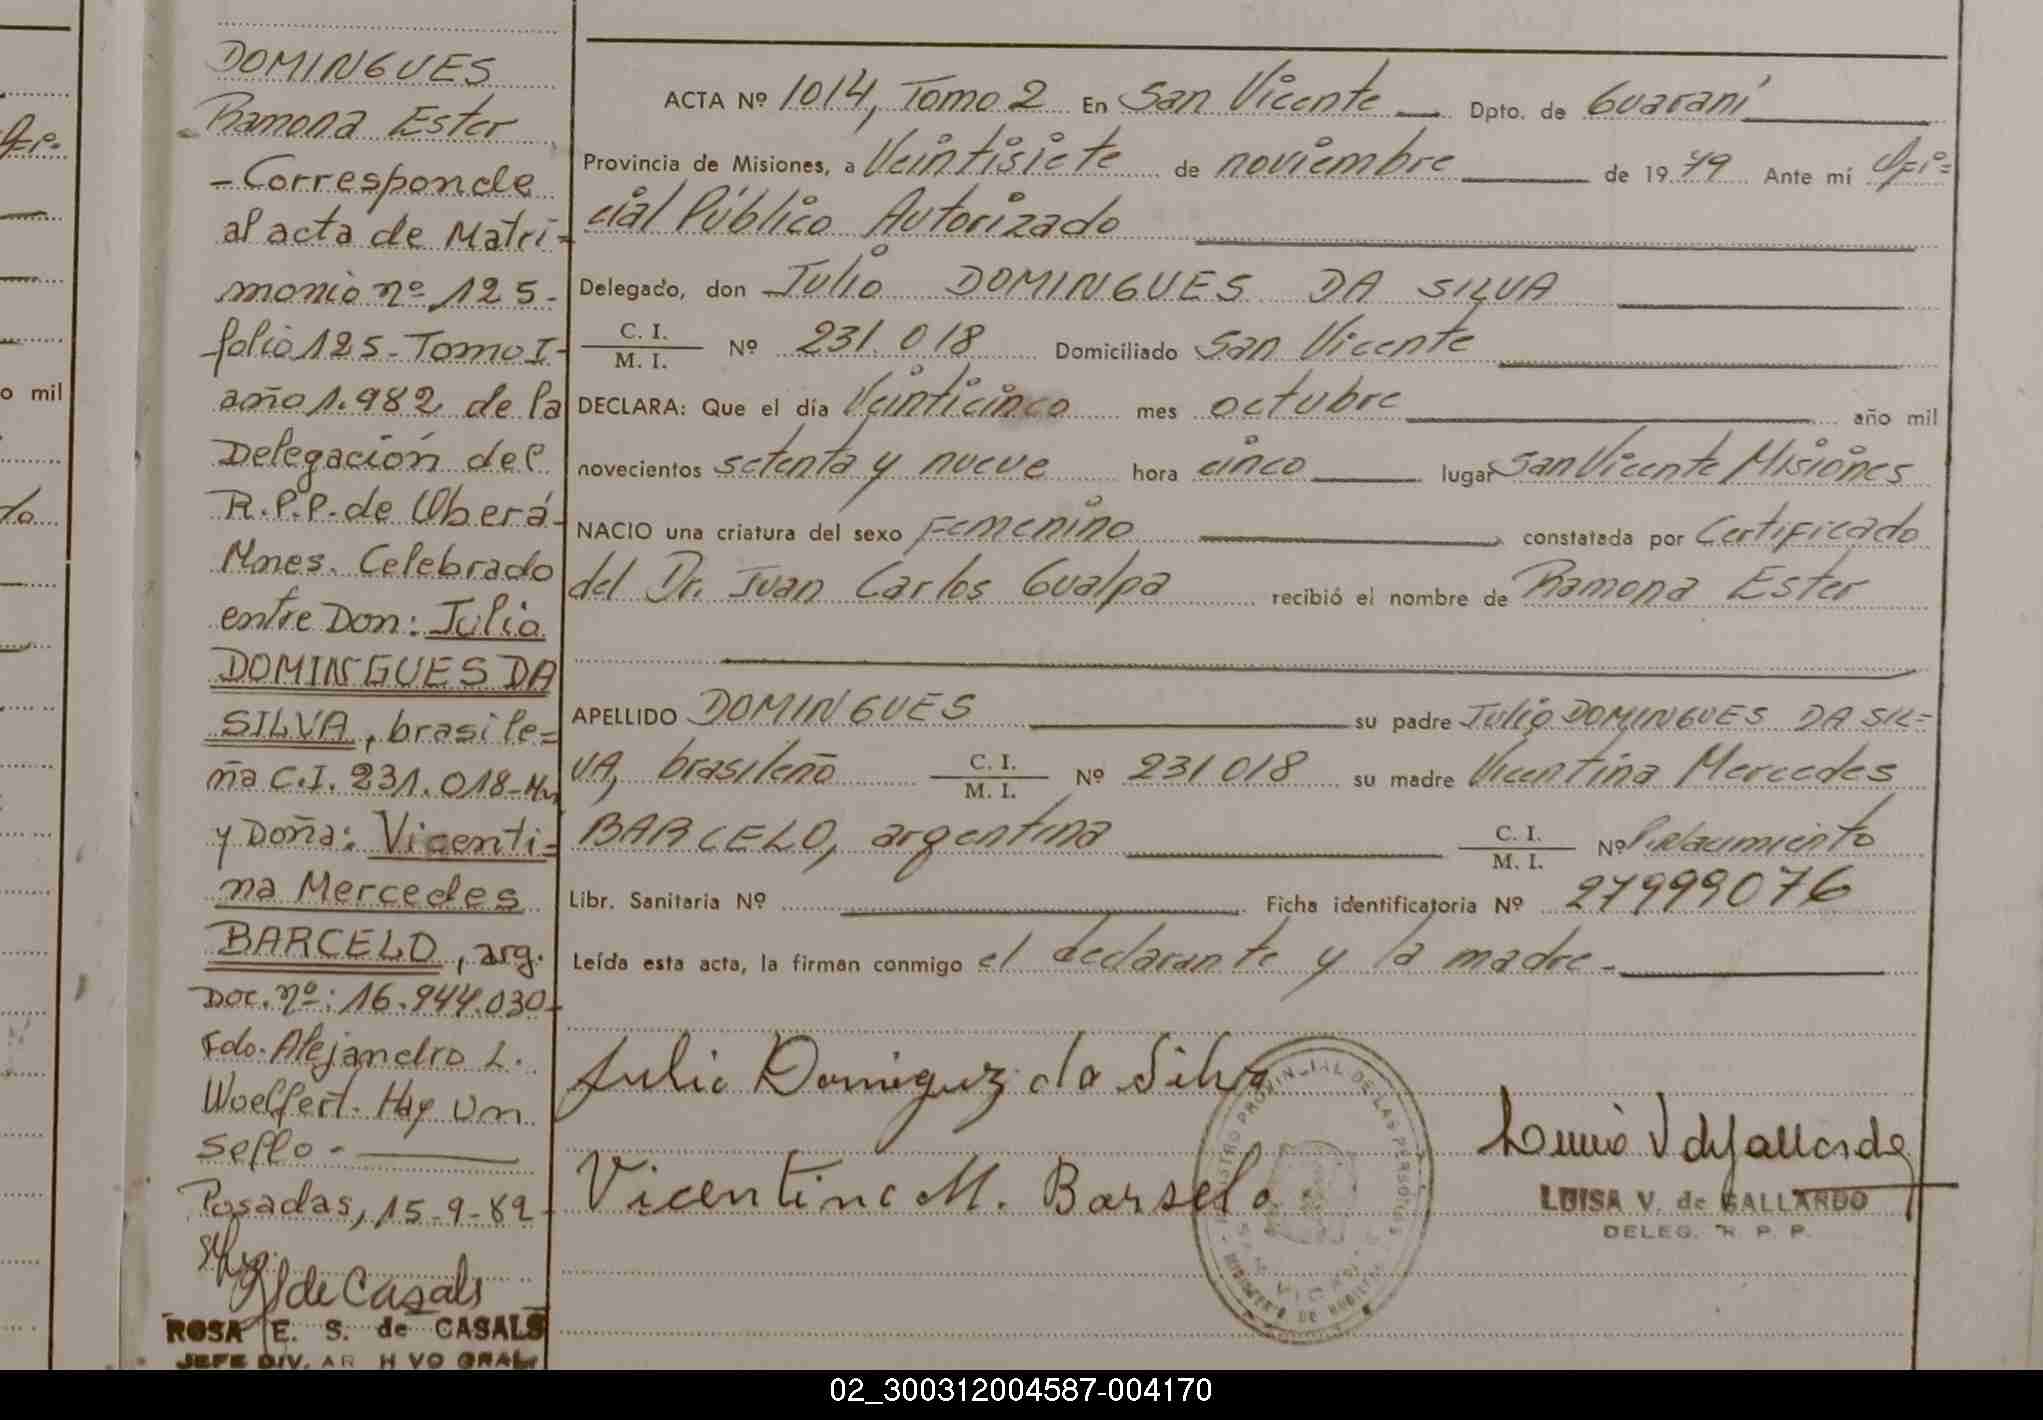 DOMINGUES
Ramona Ester
- Corresponde
al acta de Matri-
monio nº 125-
folio 125-Tomo I-
año 1.982 de la
Delegación del
R.P.P. de Oberá-
Mnes. Celebrado
entre Don: Julio
DOMINGUES DA
SILVA, brasile=
ña C.I. 231.018-Mn
y Doña: Vicenti=
na Mercedes
BARCELO, arg.
Doc. nº: 16.944.030-
Fdo. Alejandro L.
Woelffert. Hay un
sello -
Posadas, 15-9-82-
de Casals
ROSA E. S. de CASALS
JEFE DIV. AR H VO GRAL.
ACTA Nº 1014, Tomo 2 En San Vicente Dpto. de Guaraní
Provincia de Misiones, a Veintisiete de noviembre de 1979 Ante mí Ofi=
cial Público Autorizado
Delegado, don Julio DOMINGUES DA SILVA
C. I.
M. I. Nº 231.018 Domiciliado San Vicente
DECLARA: Que el día Veinticinco mes octubre año mil
novecientos setenta y nueve hora cinco lugar San Vicente Misiones
NACIO una criatura del sexo Femenino constatada por Certificado
del Dr. Juan Carlos Gualpa recibió el nombre de Ramona Ester
APELLIDO DOMINGUES su padre Julio DOMINGUES DA SIL=
VA, brasileño C. I. M. I. Nº 231018 su madre Vicentina Mercedes
BARCELO, argentina C. I. M. I. Nº
Libr. Sanitaria Nº Ficha identificatoria Nº 27999076
Leída esta acta, la firman conmigo el declarante y la madre.-
Julio Domiguz da Silva
Vicentina M. Barselo
REGISTRO PROVINCIAL DE LAS PERSONAS
LUISA V. de GALLARDO
DELEG. R. P. P.
02_300312004587-004170